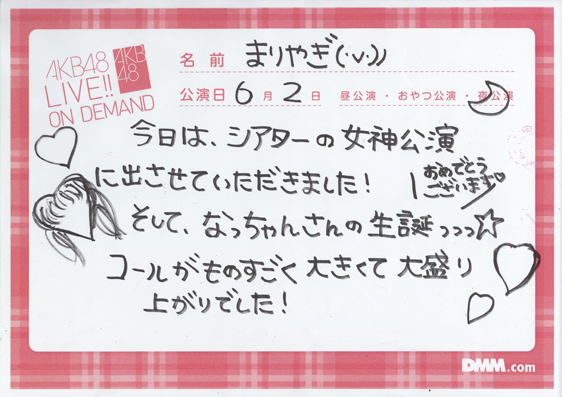 AKB48
LIVE!!
ON DEMAND
AKB
48
名前 まりやぎ(·v·))
公演日 6月2日 昼公演・おやつ公演・夜公演
今日は、シアターの女神公演
に出させていただきました!
おめでとう
ございます♡
そして、なっちゃんさんの生誕っっっ☆
コールがものすごく大きくて大盛り
上がりでした!
DMM.com